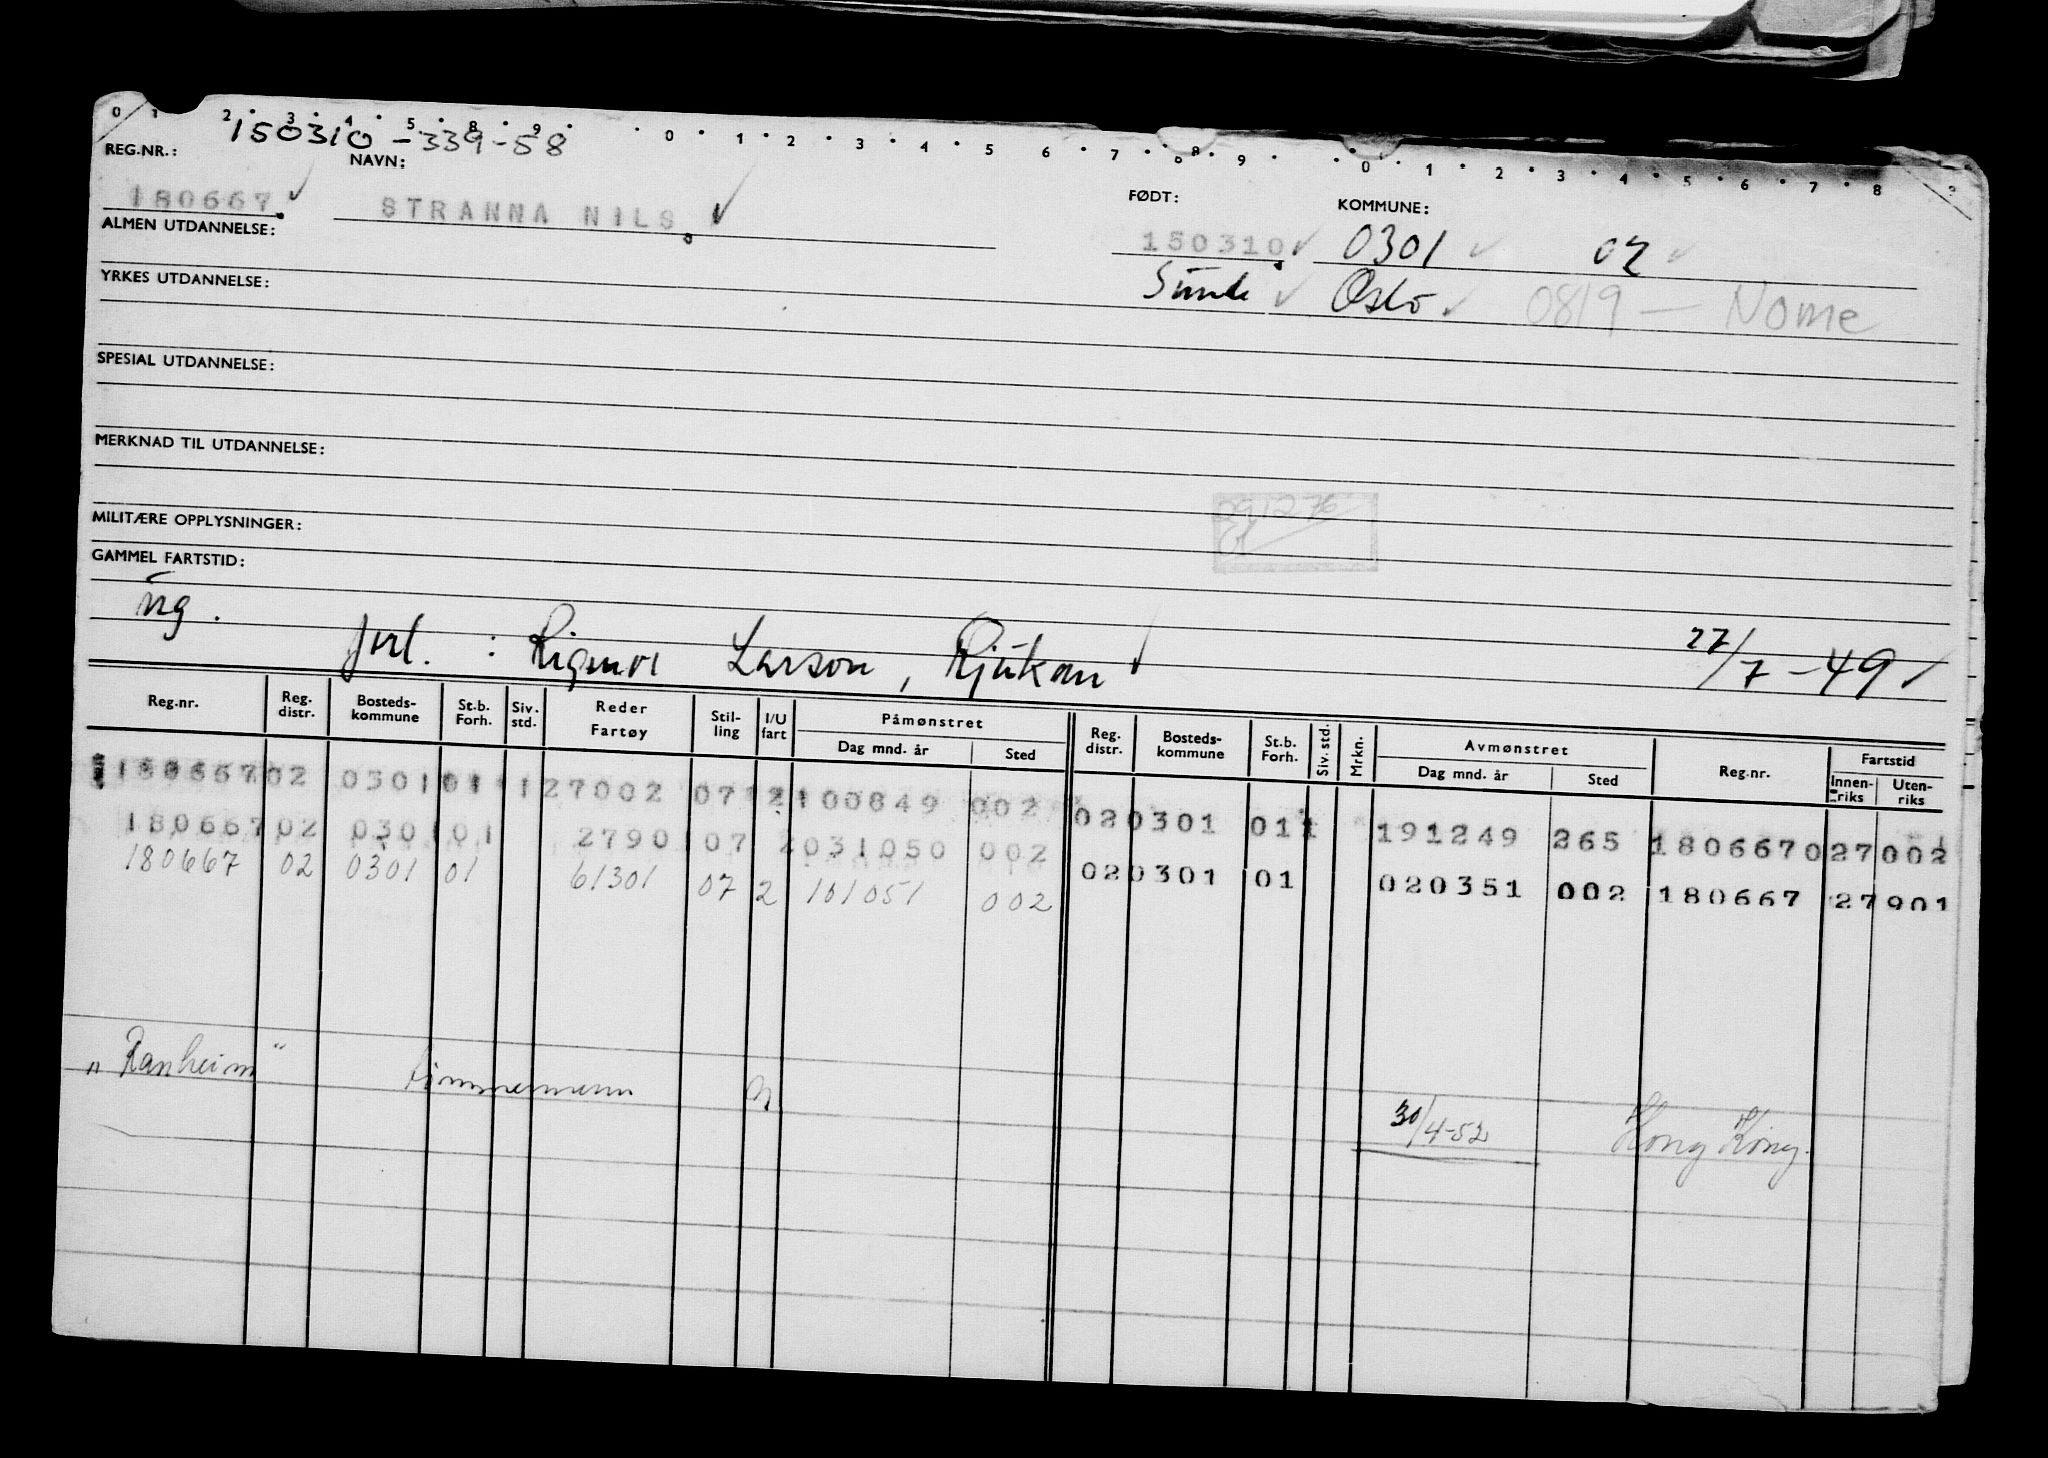 0 1 2 3 4 5 8 9 0 1 2 3 4 5 6 7 8 9 0 1 2 3 4 5 6 7 8
150310-339-58
REG.NR.: NAVN: FØDT: KOMMUNE:
180667 STRANNA NILS 150310 0301 02
ALMEN UTDANNELSE:
Oslo 0819 - Nome
YRKES UTDANNELSE:
SPESIAL UTDANNELSE:
MERKNAD TIL UTDANNELSE:
291276
MILITÆRE OPPLYSNINGER:
GAMMEL FARTSTID:
ug.
forl. : Rigmor Larson, Rjukan 27/7-49
Reg.nr. Reg. distr. Bosteds-kommune St.b. Forh. Siv. std. Reder Fartøy Stil-ling I/U fart Påmønstret Dag mnd. år Sted Reg. distr. Bosteds-kommune St.b. Forh. Siv. std. Mrkn. Avmønstret Dag mnd. år Sted Reg.nr. Fartstid Innen-riks Uten-riks
180667 02 0301 01 1 27002 07 2 100849 002 02 0301 01 1 191249 265 180667 027002
180667 02 0301 01 2790 07 2 031050 002 02 0301 01 020351 002 180667 27901
180667 02 0301 01 61301 07 2 101051 002
"Ranheim" tømmermenn 30/4-52 Hong Kong.